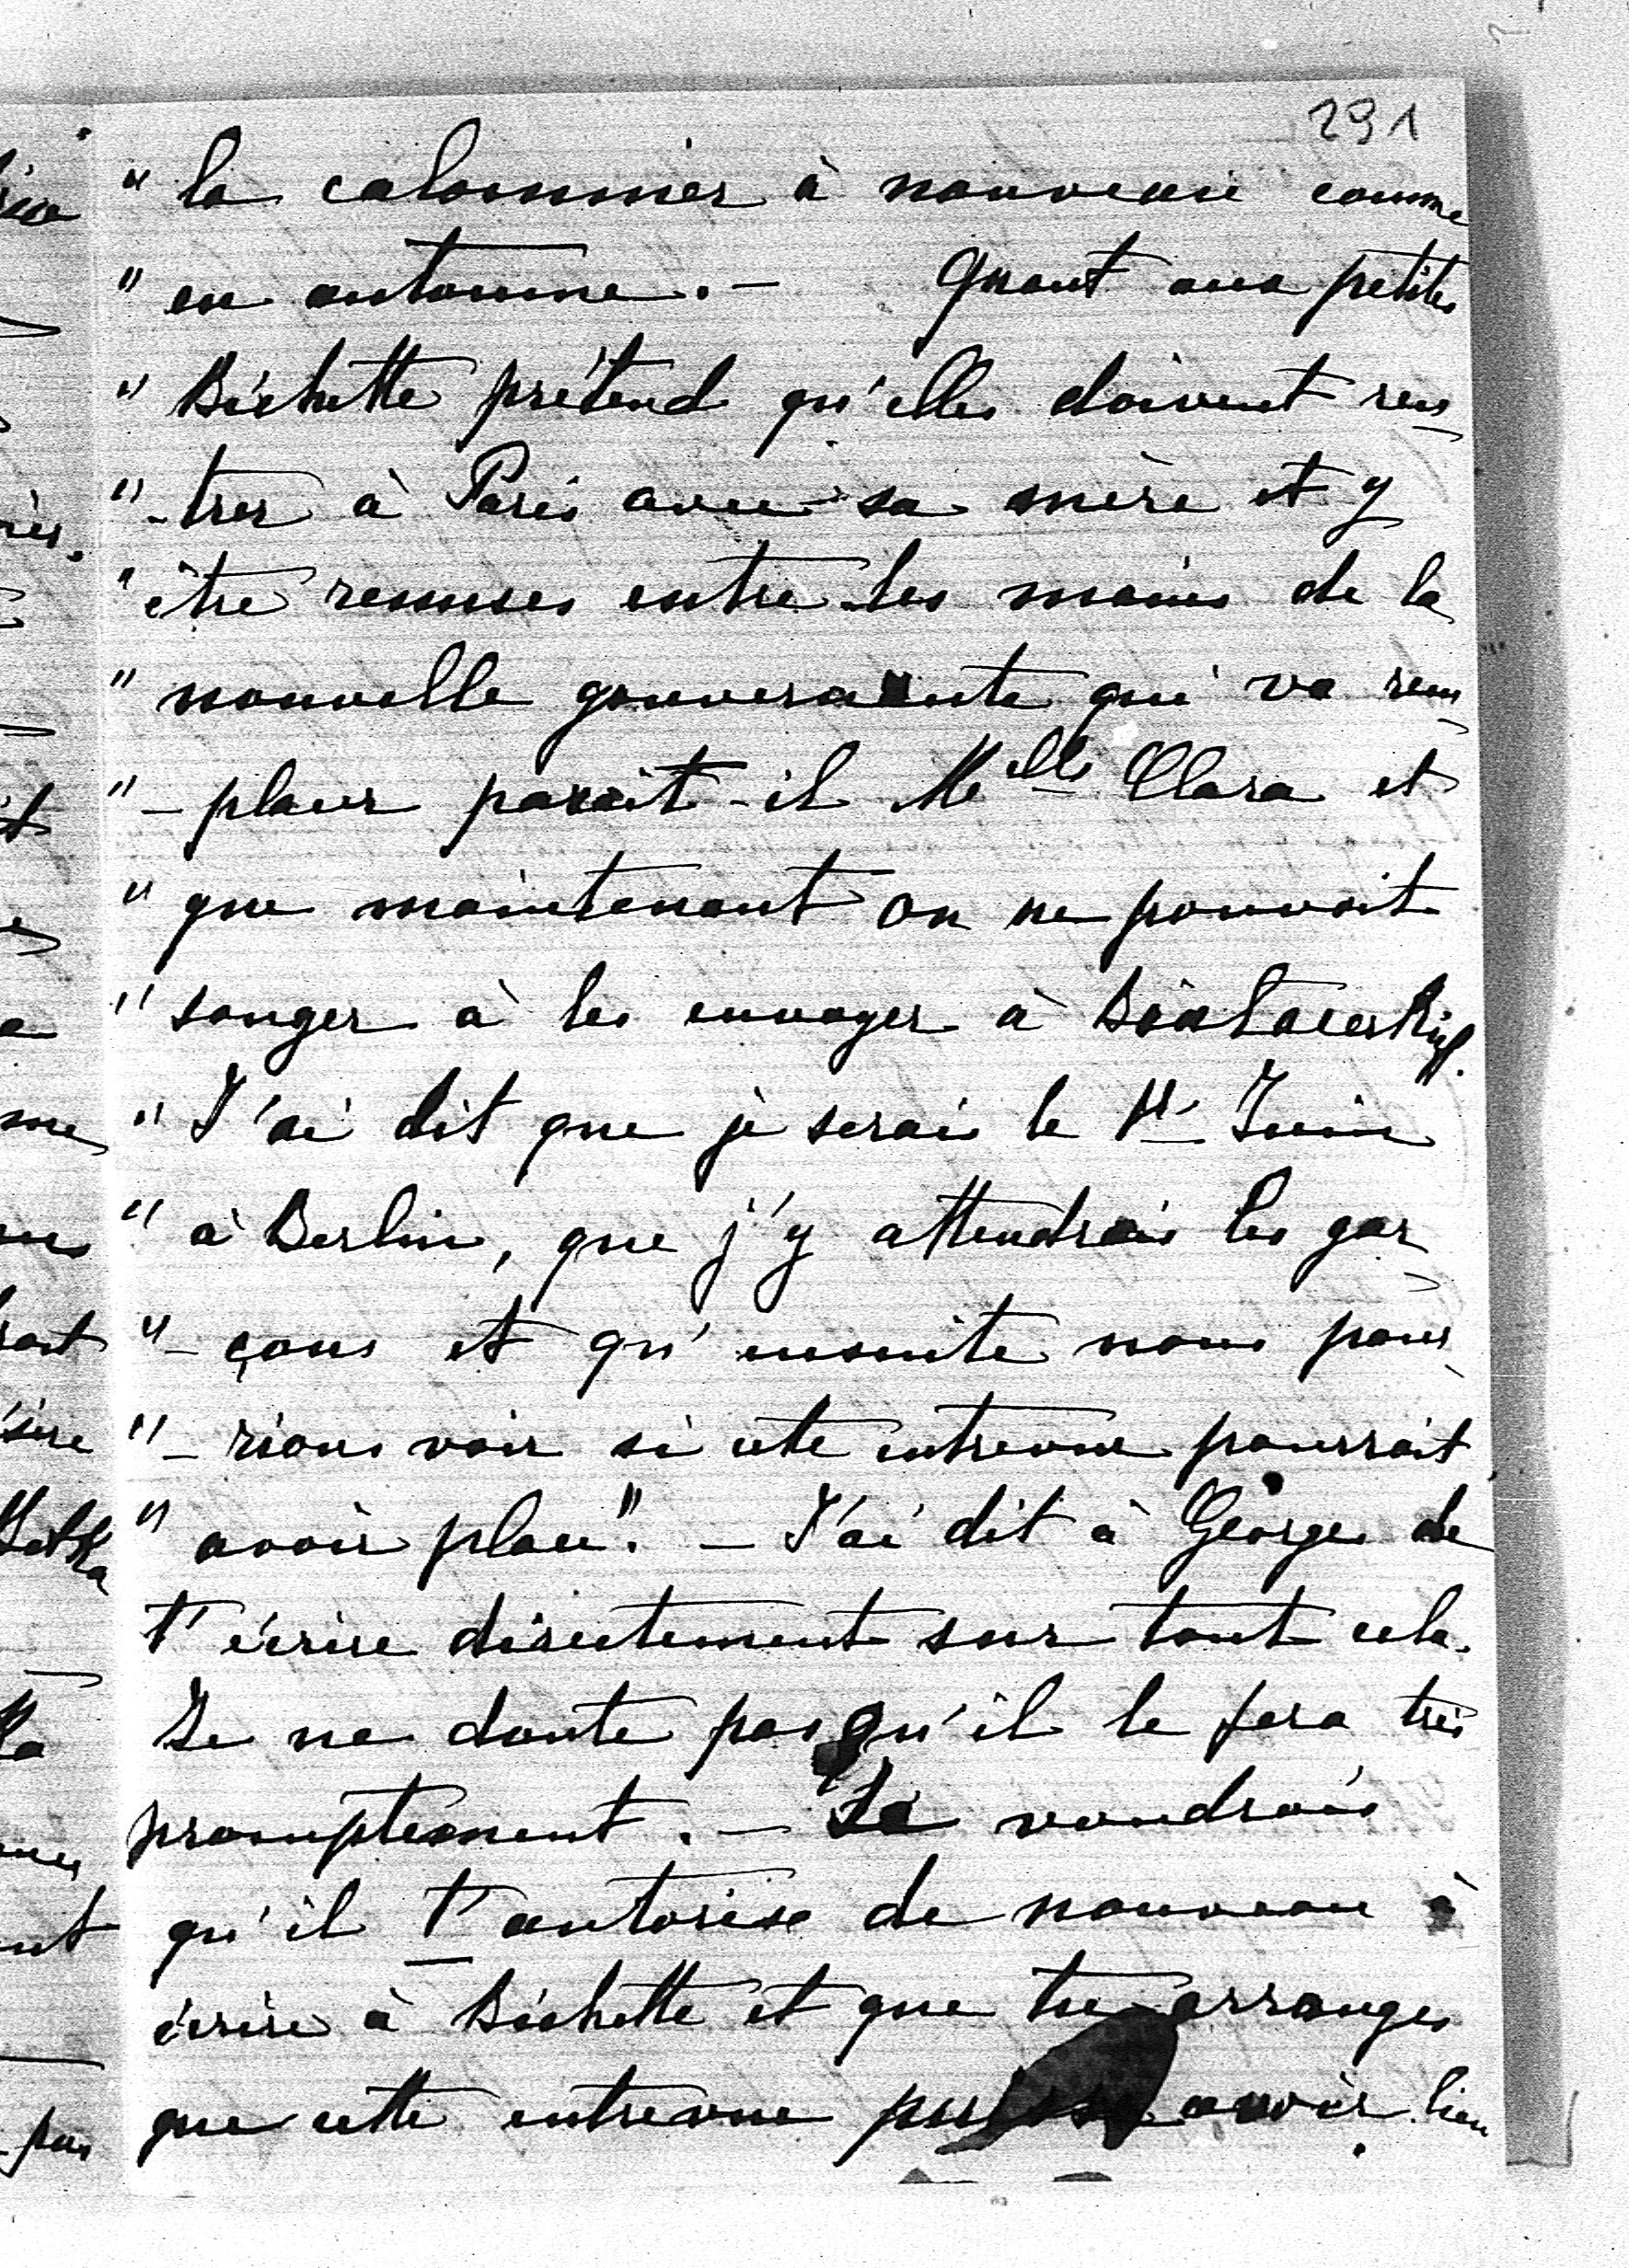 291
" la calomnier à nouveau comme
" en automne. — Quant aux petites
" Bichette prétend qu'elles doivent ren-
" -trer à Paris avec sa mère et y
" être remises entre les mains de la
" nouvelle gouvernante qui va rem-
" -placer parait-il Melle Clara et
" que maintenant on ne pouvait
" songer à les envoyer à
" J'ai dit que je serai le 1r Juin
" à Berlin, que j'y attendrais les gar-
" -çons et qu'ensuite nous pour-
" -rions voir si cette entrevue pourrait
" avoir place". — J'ai dit à Georges de
t'écrire directement sur tout cela.
Je ne doute pas qu'il le fera très
promptement. — Je voudrais
qu'il t'autorise de nouveau à
écrire à Bichette et que tu arranges
que cette entrevue puisse avoir lieu